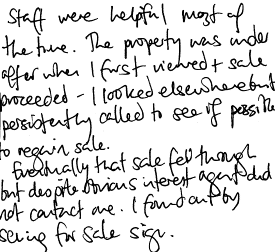 Staff were helpful most of
the time. The property was under
offer when I first viewed + sale
proceeded - I looked elsewhere but
persistently called to see if possible
to regain sale.
Eventually that sale fell through
but despite obvious interest agent did
not contact me. I found out by
seeing for sale sign.